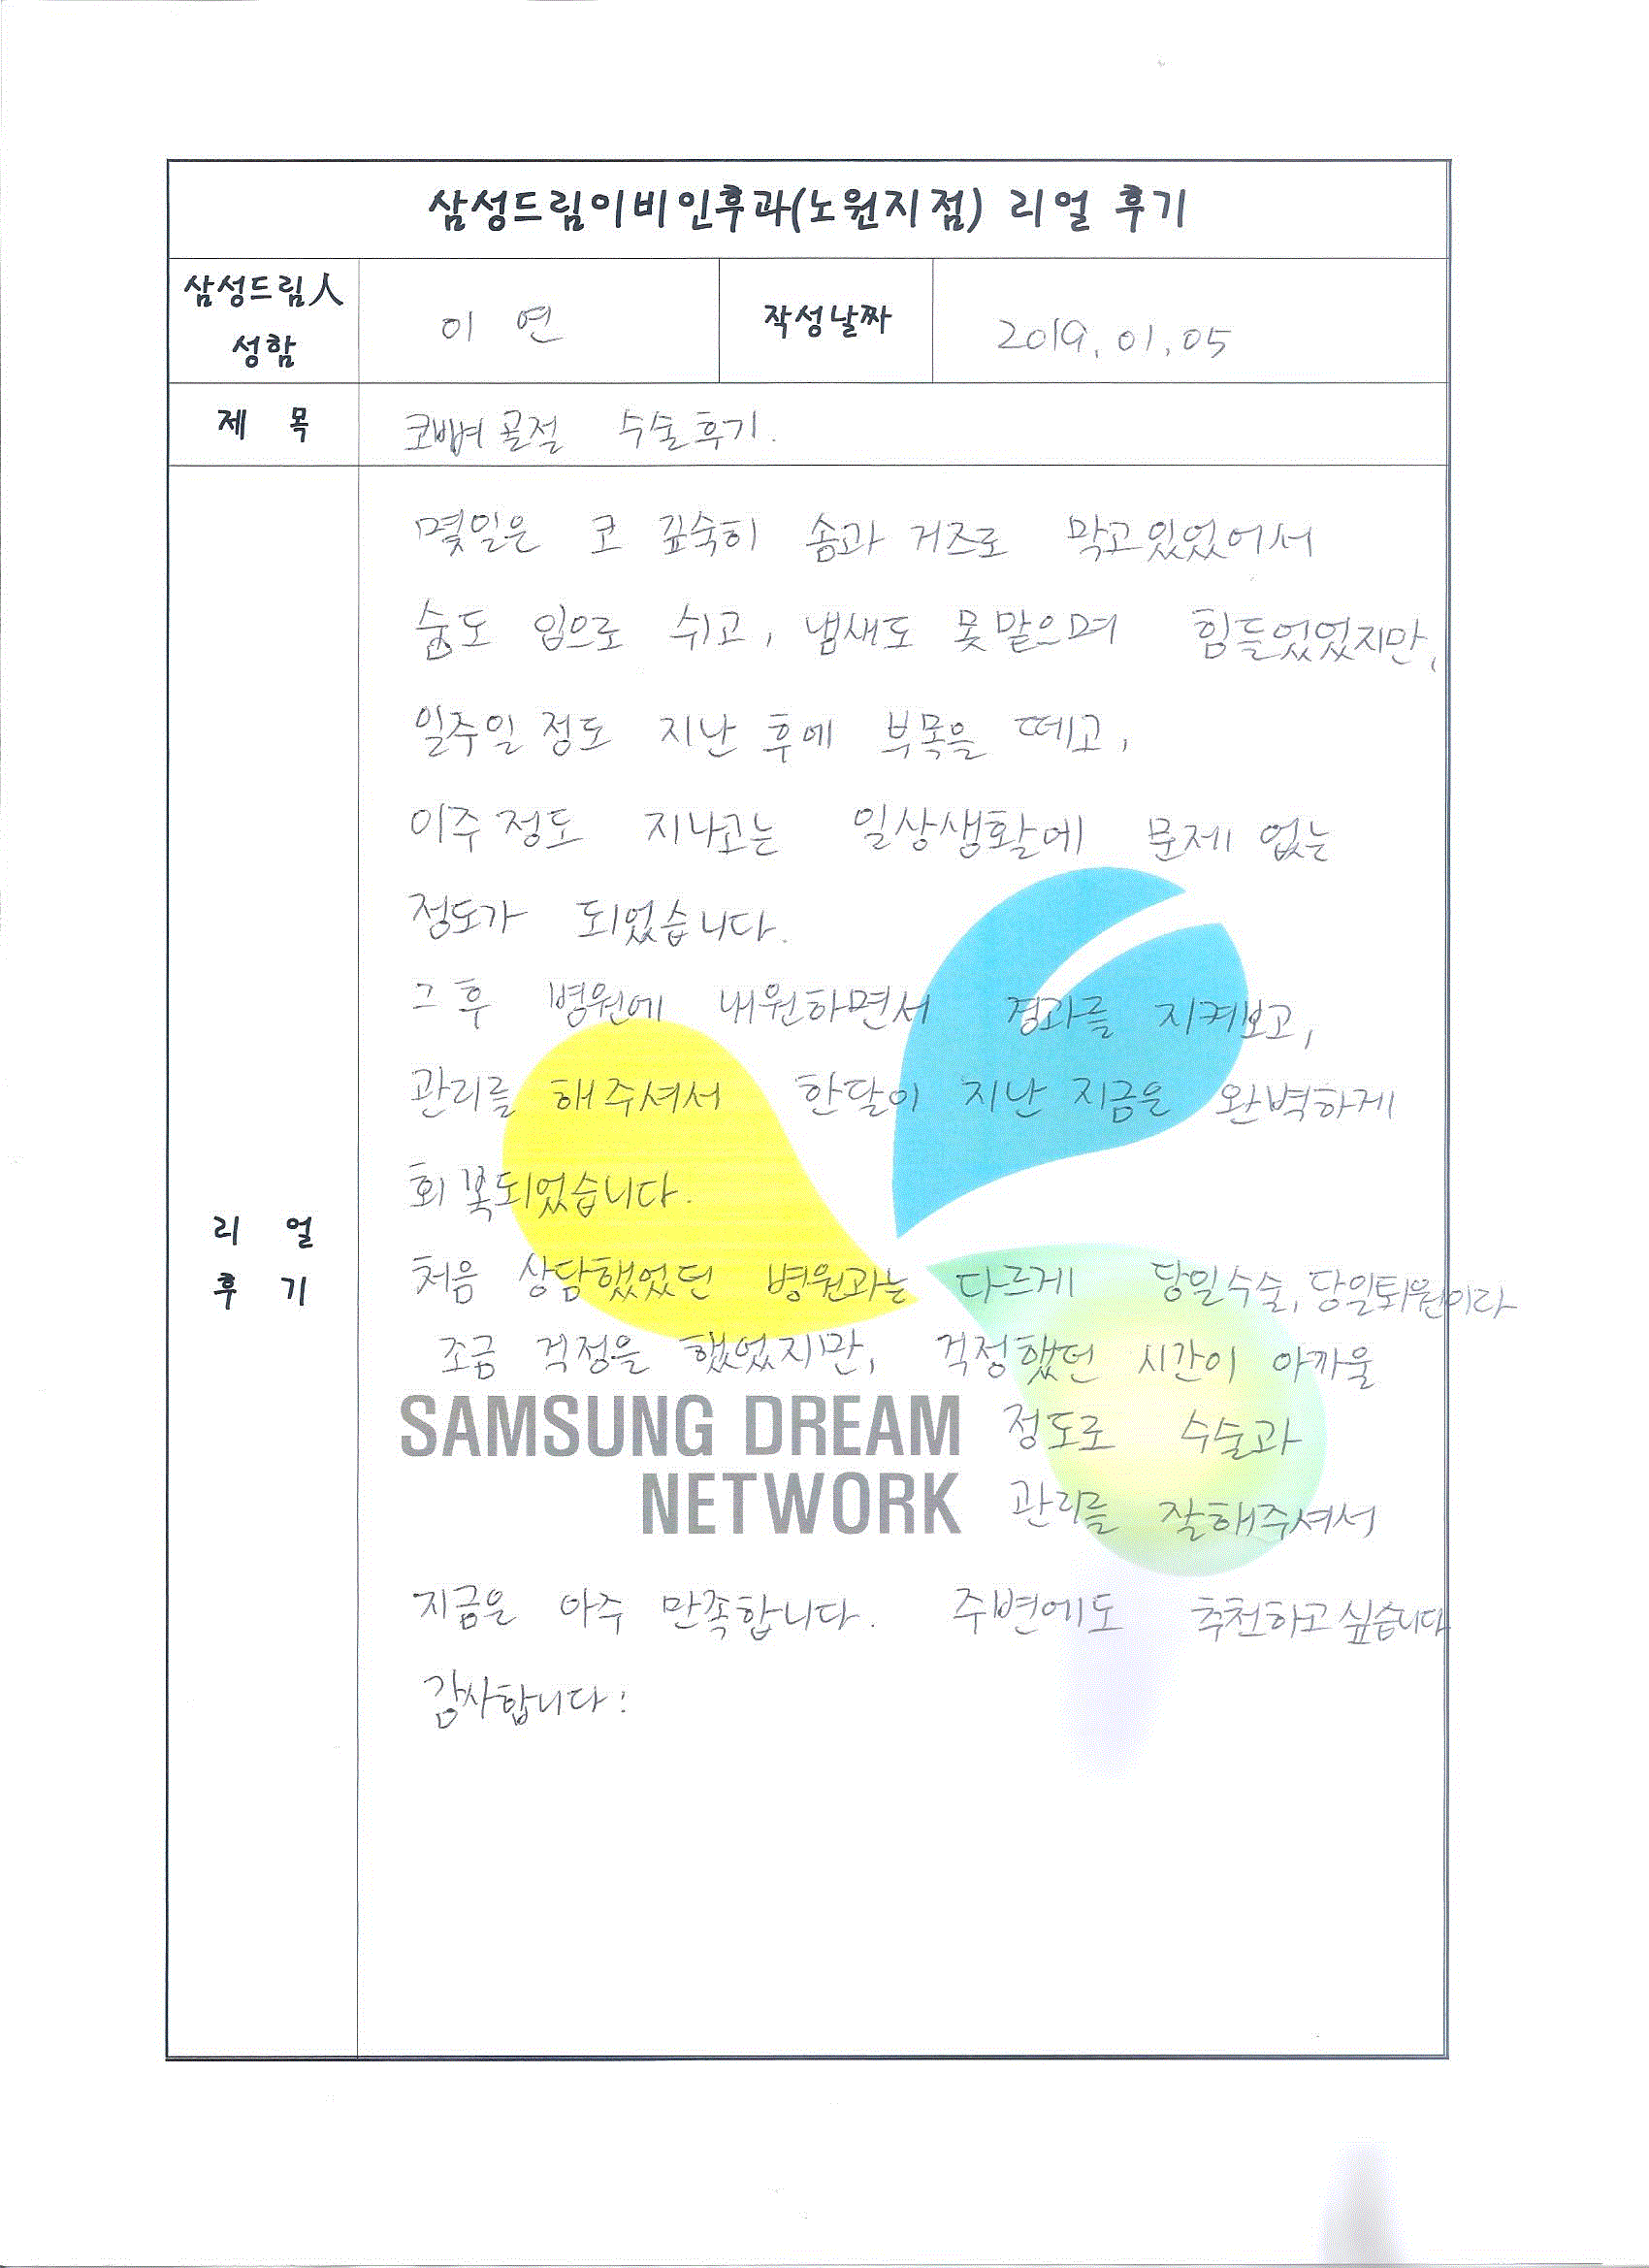 삼성드림이비인후과(노원지점) 리얼 후기
삼성드림人
성함
이 연
작성날짜
2019. 01. 05
제 목
코뼈 골절 수술후기.
리 얼
후 기
몇일은 코 깊숙히 솜과 거즈로 막고있었어서
숨도 입으로 쉬고, 냄새도 못맡으며 힘들었었지만,
일주일 정도 지난 후에 부목을 떼고,
이주 정도 지나고는 일상생활에 문제 없는
정도가 되었습니다.
그 후 병원에 내원하면서 경과를 지켜보고,
관리를 해주셔서 한달이 지난 지금은 완벽하게
회복되었습니다.
처음 상담했었던 병원과는 다르게 당일수술, 당일퇴원이라
조금 걱정을 했었지만, 걱정했던 시간이 아까울
정도로 수술과
관리를 잘해주셔서
지금은 아주 만족합니다. 주변에도 추천하고 싶습니다
감사합니다:
SAMSUNG DREAM
NETWORK